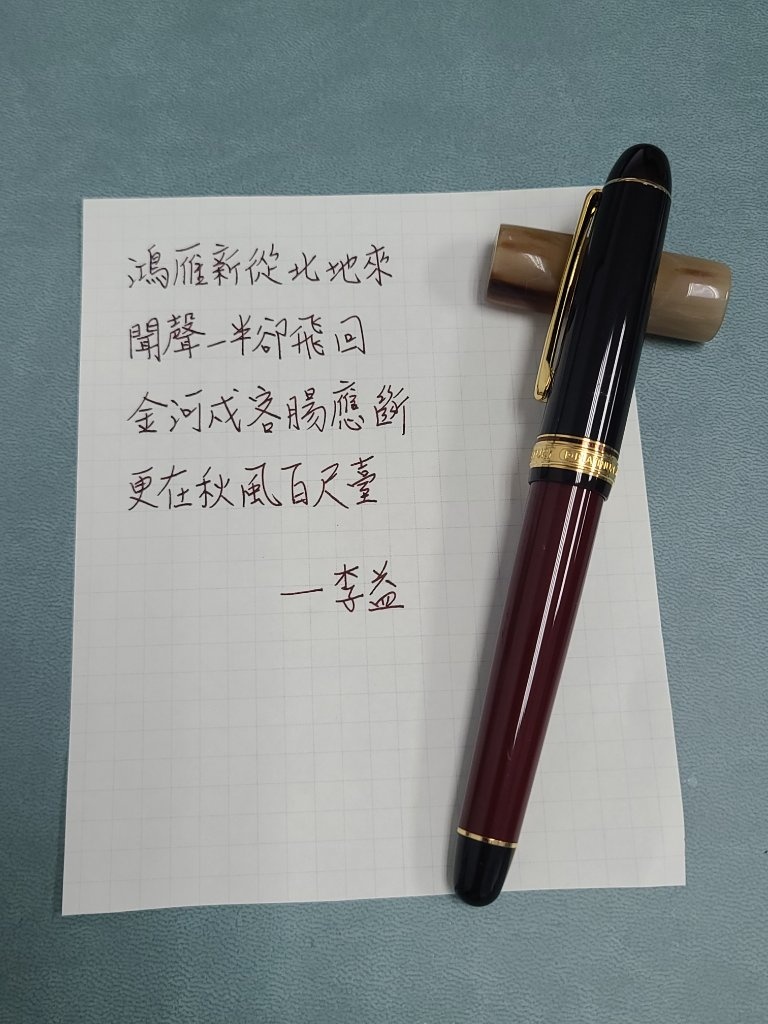 鴻雁新從北地來
聞聲一半卻飛回
金河戍客腸應斷
更在秋風百尺臺
—李益